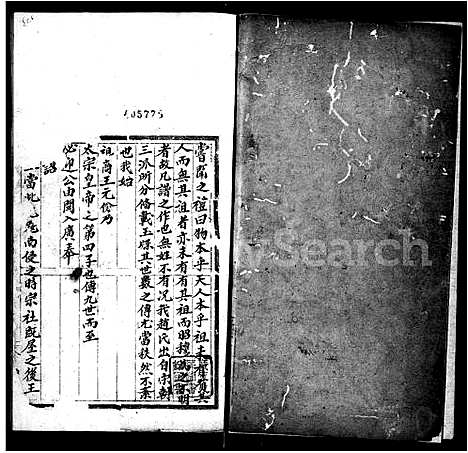 嘗聞之禮曰物本乎天人本乎祖未有
人而無其祖者亦未有有其祖而昭穆
者故凡譜之作也無姓不有况我趙氏出自宗朝
三派所分俻載玉牒其世數之傳尤當秩然不紊
也我始
祖商王元份乃
太宗皇帝之第四子也傳九世而至
必迎公由閩入廣奉
詔
南使之時宗社既屋之後王
105776
Search